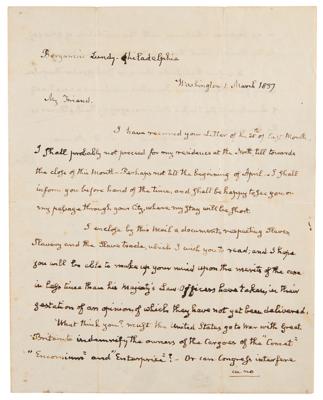 Benjamin Lundy. Philadelphia
Washington 1. March 1837
My Friend.
I have received your Letter of the 25th of last Month
I shall probably not proceed for my residence at the North till towards
the close of this Month—Perhaps not till the beginning of April. I shall
inform you before hand of the time, and shall be happy to see you on
my passage through your City, where my stay will be short.
I enclose by this Mail a document, respecting Slaves
Slavery and the Slave trade, which I wish you to read; and I hope
you will be able to make up your mind upon the merits of the case
in less time than his Majesty's Law Officers have taken, in their
gestation of an opinion of which they have not yet been delivered.
What think you? must the United States go to War with Great
Britain to indemnify the owners of the Cargoes of the Comet"
"Encomium" and "Enterprize"?—Or can Congress interfere